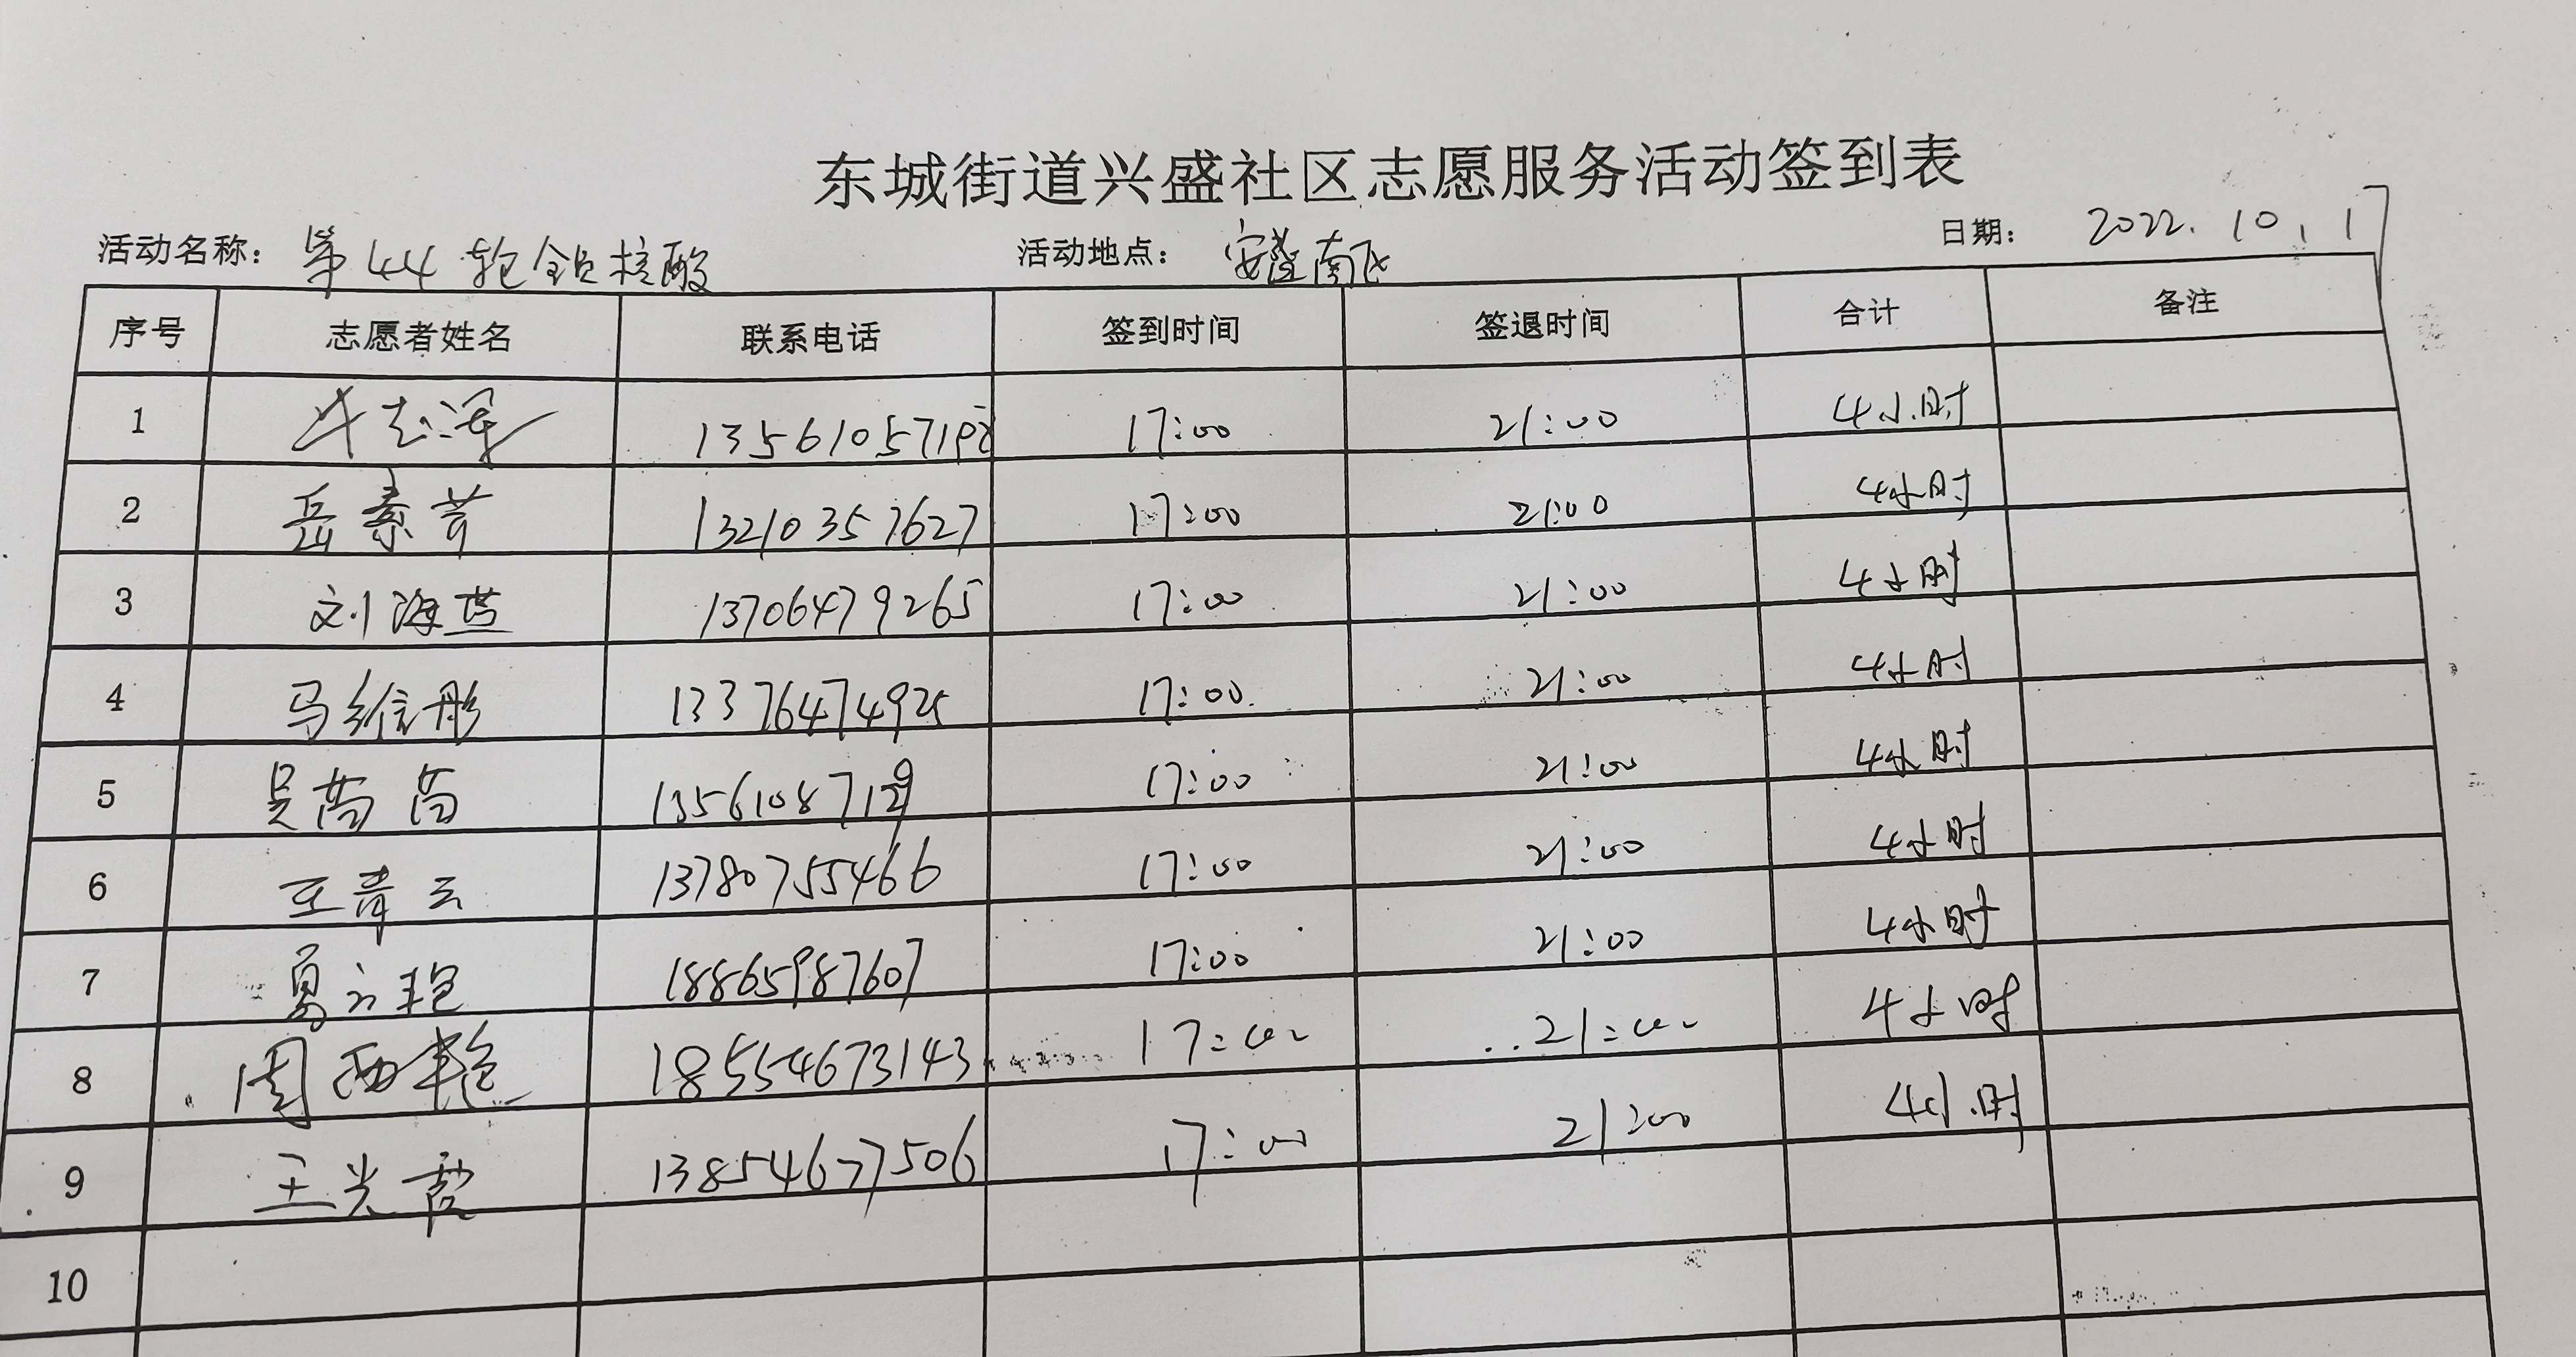 东城街道兴盛社区志愿服务活动签到表
活动名称： 第44轮全员核酸 活动地点： 安隆南区 日期： 2022.10.17
序号 志愿者姓名 联系电话 签到时间 签退时间 合计 备注
1 17:00 21:00 4小时
2 岳素芳 13210357627 17:00 21:00 4小时
3 刘海燕 13706479265 17:00 21:00 4小时
4 马维彤 13376474925 17:00 21:00 4小时
5 吴茜茜 17:00 21:00 4小时
6 王青云 13780755466 17:00 21:00 4小时
7 18865987607 17:00 21:00 4小时
8 周西艳 18554673143 17:00 21:00 4小时
9 王光霞 13854677506 17:00 21:00 4小时
10